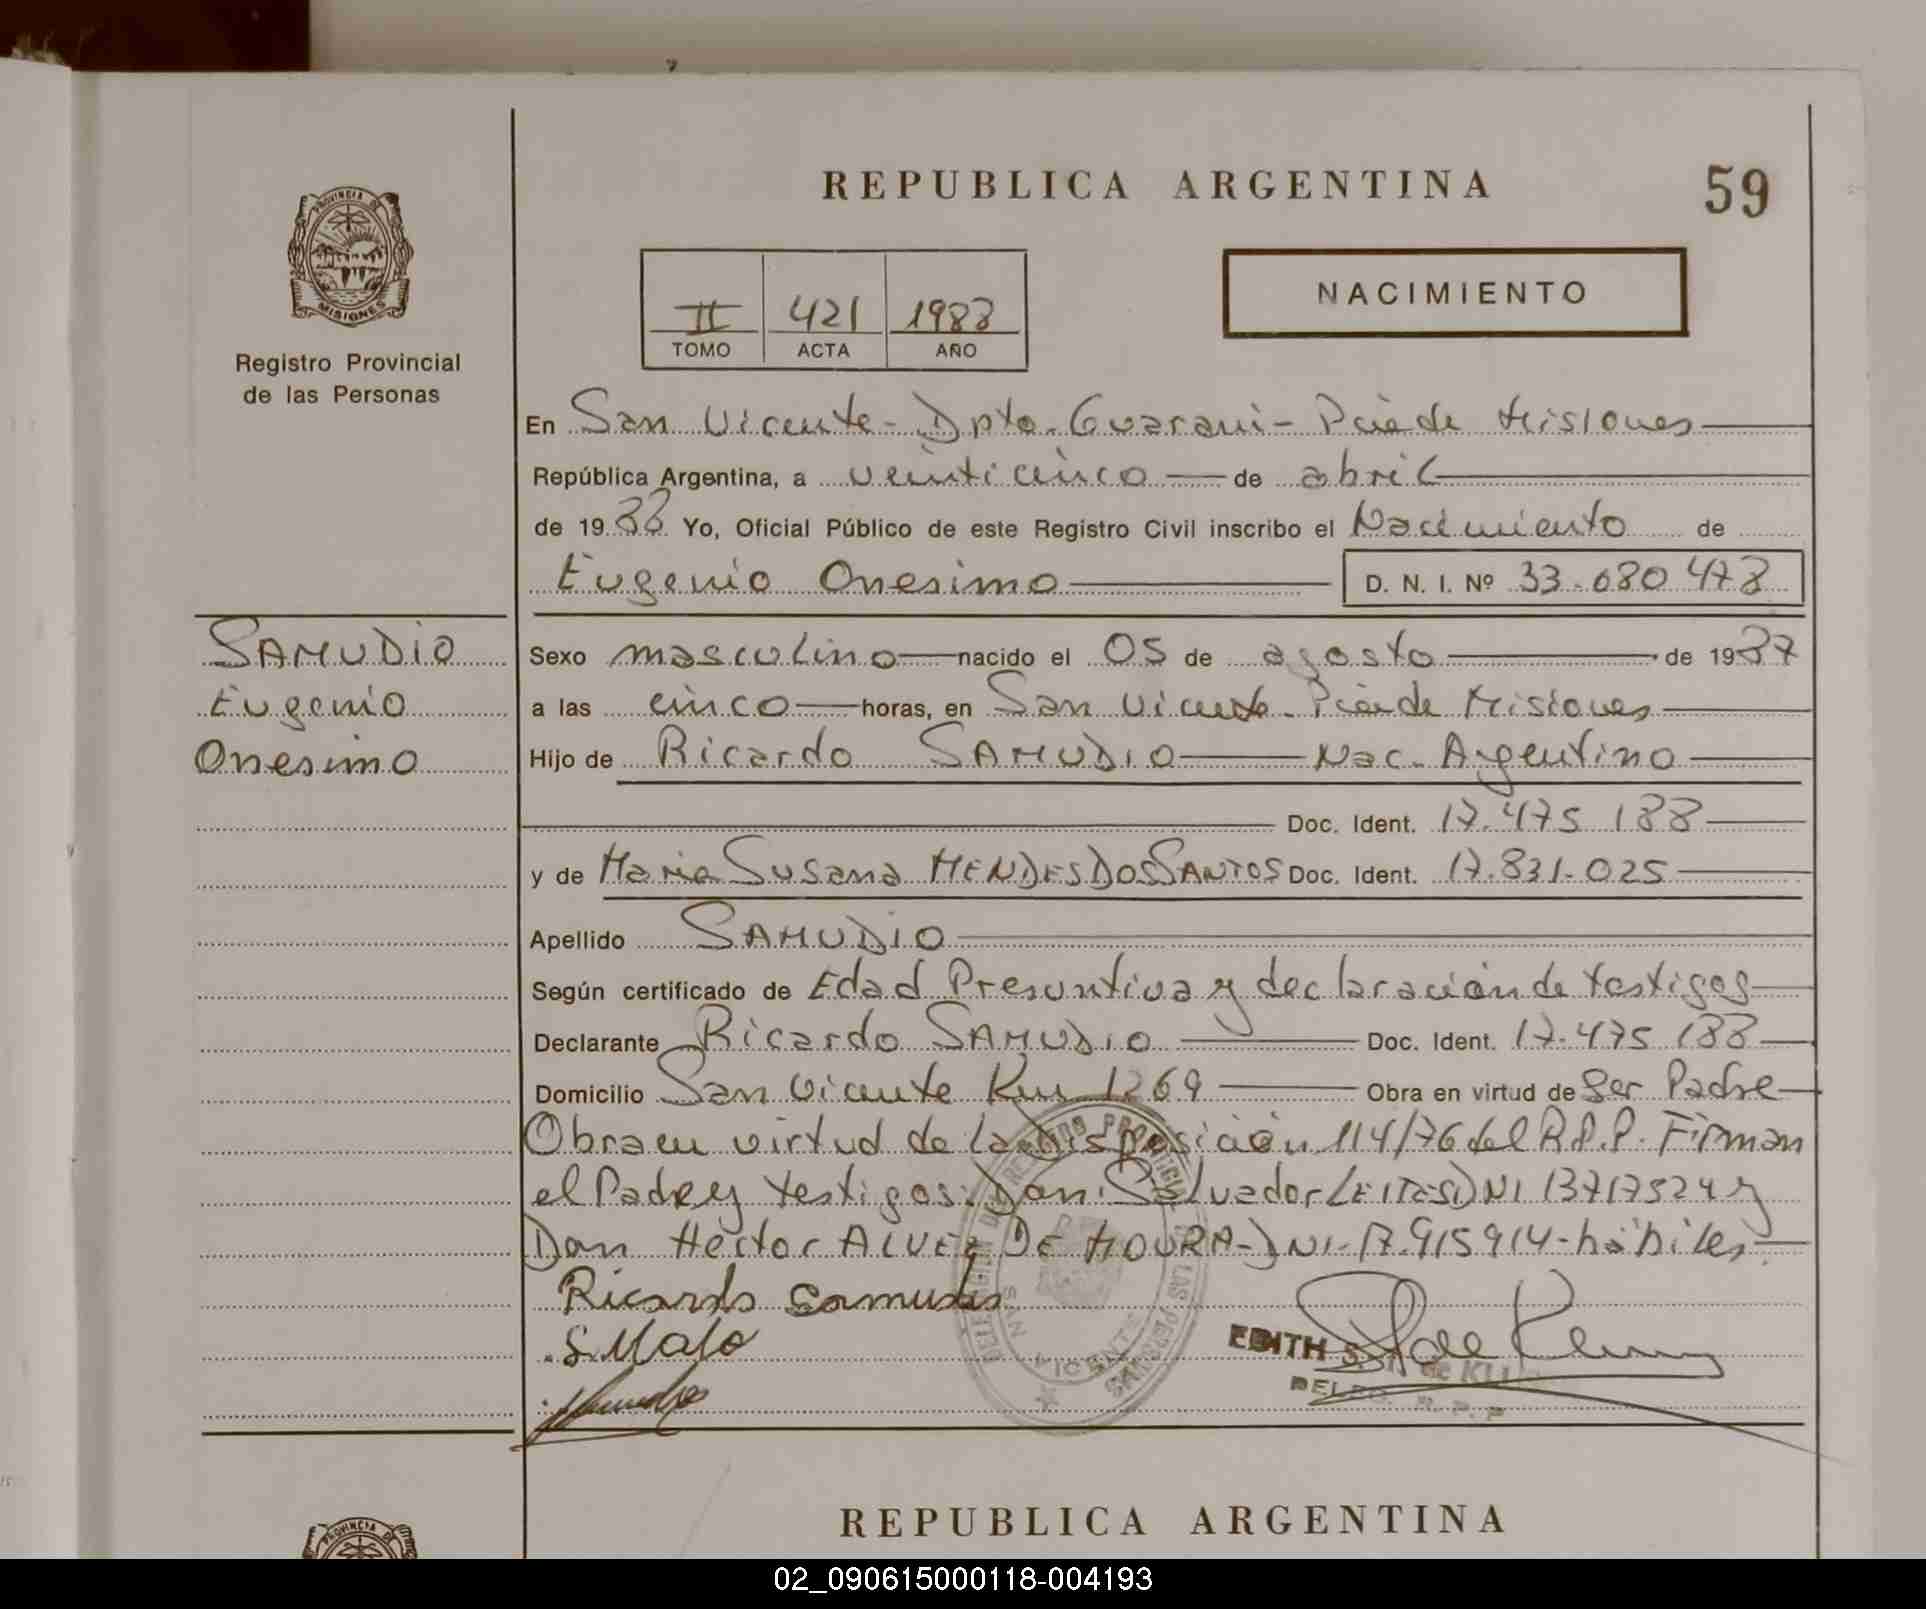 REPUBLICA ARGENTINA
59
PROVINCIA DE
MISIONES
Registro Provincial
de las Personas
II 421 1988
TOMO ACTA AÑO
NACIMIENTO
En San Vicente - Dpto. Guarani - Pcia de Misiones
República Argentina, a veinticinco de abril
de 1988 Yo, Oficial Público de este Registro Civil inscribo el Nacimiento de
Eugenio Onesimo D. N. I. Nº 33.080 478
SAMUDIO
Eugenio
Onesimo
Sexo masculino nacido el 05 de agosto de 1987
a las cinco horas, en San Vicente - Pcia de Misiones
Hijo de Ricardo SAMUDIO Nac. Argentino
Doc. Ident. 17.475 188
y de Maria Susana MENDES DOS SANTOS Doc. Ident. 17.831.025
Apellido SAMUDIO
Según certificado de Edad Presuntiva y declaración de testigos
Declarante Ricardo SAMUDIO Doc. Ident. 17.475 188
Domicilio San Vicente Km 1269 Obra en virtud de Ser Padre
Obra en virtud de la disposición 114/76 del R.P.P. Firman
el Padre y testigos: Don Salvador LEITES DNI 13717524 y
Don Hector ALVEZ DE MOURA - DNI - 17.915914 - hábiles
Ricardo Samudio
DELEGACION DEL REGISTRO PROVINCIAL DE LAS PERSONAS
SAN VICENTE
EDITH S. de
DELEG. R. P. P
REPUBLICA ARGENTINA
PROVINCIA DE
02_090615000118-004193